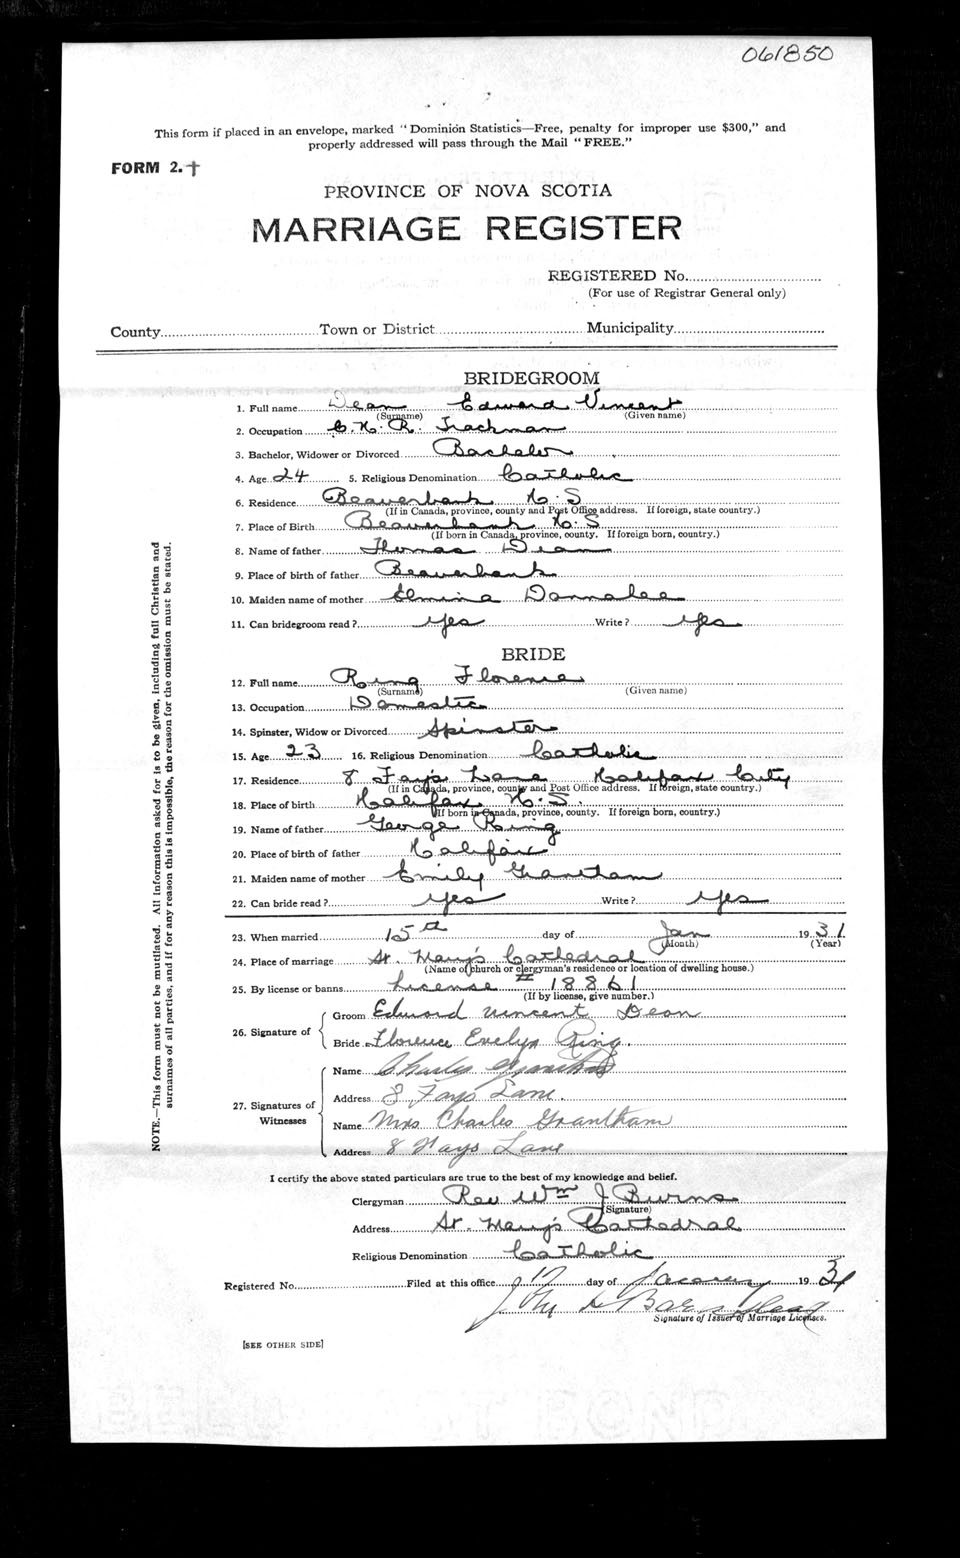 061850
This form if placed in an envelope, marked "Dominion Statistics—Free, penalty for improper use $300," and
properly addressed will pass through the Mail "FREE."
FORM 2.
PROVINCE OF NOVA SCOTIA
MARRIAGE REGISTER
REGISTERED No.
(For use of Registrar General only)
County Town or District Municipality
BRIDEGROOM
1. Full name Dean Edward Vincent
(Surname) (Given name)
2. Occupation C.N.R. Trackman
3. Bachelor, Widower or Divorced Bachelor
4. Age 24 5. Religious Denomination Catholic
6. Residence Beaverbank N.S
(If in Canada, province, county and Post Office address. If foreign, state country.)
7. Place of Birth Beaverbank N.S
(If born in Canada, province, county. If foreign born, country.)
8. Name of father Thomas Dean
9. Place of birth of father Beaverbank
10. Maiden name of mother Elmina
11. Can bridegroom read? yes Write? yes
BRIDE
12. Full name Ring Florence
(Surname) (Given name)
13. Occupation Domestic
14. Spinster, Widow or Divorced Spinster
15. Age 23 16. Religious Denomination Catholic
17. Residence 8 Fay's Lane Halifax City
(If in Canada, province, county and Post Office address. If foreign, state country.)
18. Place of birth Halifax N.S.
(If born in Canada, province, county. If foreign born, country.)
19. Name of father George Ring
20. Place of birth of father Halifax
21. Maiden name of mother Emily Grantham
22. Can bride read? yes Write? yes
23. When married 15th day of Jan 1931
(Month) (Year)
24. Place of marriage St. Mary's Cathedral
(Name of church or clergyman's residence or location of dwelling house.)
25. By license or banns License # 18861
(If by license, give number.)
26. Signature of
Groom Edward Vincent Dean
Bride Florence Evelyn Ring.
27. Signatures of Witnesses
Name Charles Grantham
Address 8 Fays Lane.
Name Mrs Charles Grantham
Address 8 Fays Lane
I certify the above stated particulars are true to the best of my knowledge and belief.
Clergyman Rev Wm J Burns
(Signature)
Address St. Mary's Cathedral
Religious Denomination Catholic
Registered No. Filed at this office 17 day of January 1931
Signature of Issuer of Marriage Licenses.
[SEE OTHER SIDE]
NOTE.—This form must not be mutilated. All information asked for is to be given, including full Christian and
surnames of all parties, and if for any reason this is impossible, the reason for the omission must be stated.